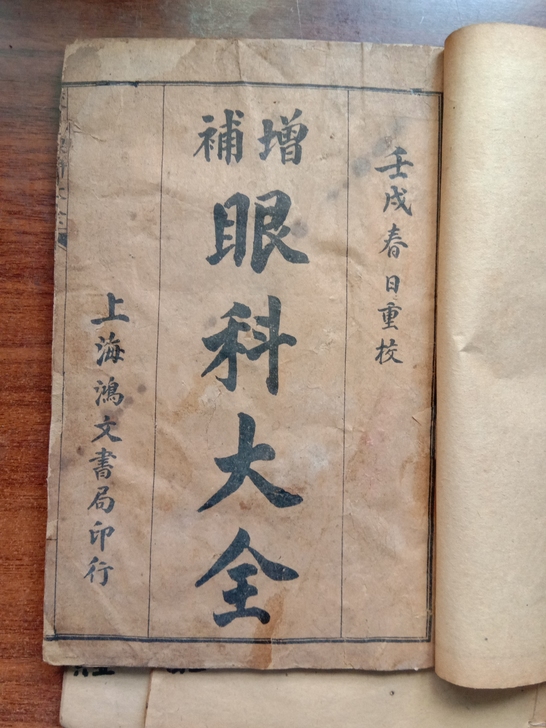 壬戌春日重校
增補
眼科大全
上海鴻文書局印行